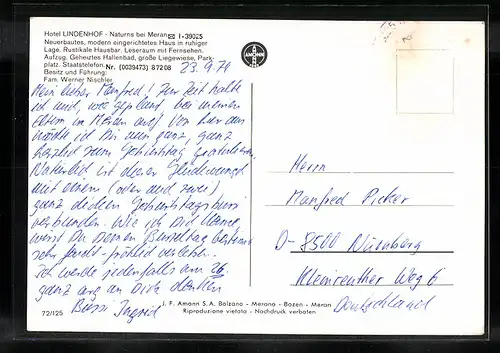 Hotel LINDENHOF - Naturns bei Meran ✉ I-39025
Neuerbautes, modern eingerichtetes Haus in ruhiger
Lage. Rustikale Hausbar. Leseraum mit Fernsehen.
Aufzug. Geheiztes Hallenbad, große Liegewiese, Park-
platz. Staatstelefon. Nr. (0039473) 87208
Besitz und Führung:
Fam. Werner Nischler.
AMONN
23.9.79
Mein lieber Manfred! Zur Zeit halte
ich mich, wie geplant bei meinen
Eltern in Meran auf. Von hier aus
möchte ich Dir nun ganz, ganz
herzlich zum Geburtstag gratulieren.
Natürlich ist dieser Glückwunsch
mit einem (oder auch zwei)
ganz dicken Geburtstagsbussi
verbunden. Wie ich Dich kenne,
wirst Du Deinen Ehrentag
sehr feucht-fröhlich verleben.
Ich werde jedenfalls am 26.
ganz arg an Dich denken
Bussi Ingrid
Herrn
Manfred Picker
D-8500 Nürnberg
Kleinreuther Weg 6
Deutschland
72/125
J. F. Amonn S.A. Bolzano - Merano - Bozen - Meran
Riproduzione vietata - Nachdruck verboten